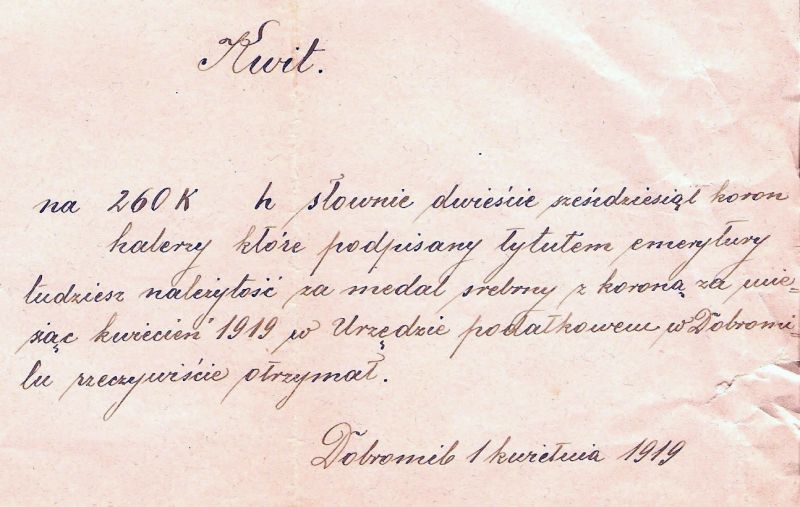 Kwit.
na 260 K h słownie dwieście sześdziesiąt koron
halerzy które podpisany tytułem emerytury
tudziesz należytość za medal srebrny z koroną za mie-
siąc kwiecień 1919 w Urzędzie podatkowem w Dobromi-
lu rzeczywiście otrzymał.
Dobromil 1 kwietnia 1919